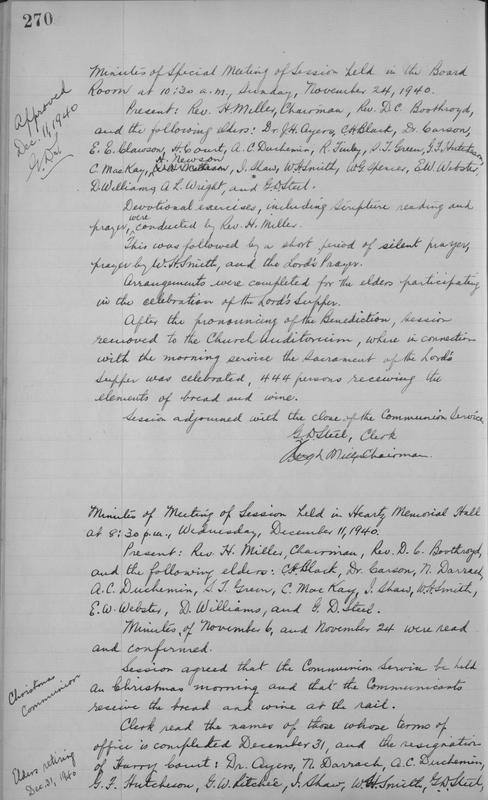 270
Approved
Dec. 11, 1940
G.D.S.
Minutes of Special Meeting of Session held in the Board
Room at 10:30 a.m., Sunday, November 24, 1940.
Present: Rev. H. Miller, Chairman, Rev. D.C. Boothroyd,
and the following elders: Dr. G.H. Ayers, C.H. Black, Dr. Carson,
E.E. Clawson, H. Court, A.C. Duchemin, R. Furby, S.T. Green, G.F. Hutcheson,
H. Newson
C. MacKay, J. Shaw, W.H. Smith, W.G. Spencer, E.W. Webster,
D. Williams, A.L. Wright, and G.D. Steel.
Devotional exercises, including scripture reading and
were
prayer, conducted by Rev. H. Miller.
This was followed by a short period of silent prayer,
prayer by W.H. Smith, and the Lord's Prayer.
Arrangements were completed for the elders participating
in the celebration of the Lord's Supper.
After the pronouncing of the Benediction, session
removed to the Church Auditorium, where in connection
with the morning service the Sacrament of the Lord's
Supper was celebrated, 444 persons receiving the
elements of bread and wine.
Session adjourned with the close of the Communion Service.
G.D. Steel, Clerk
Chairman.
Minutes of Meeting of Session held in Hearty Memorial Hall
at 8:30 p.m., Wednesday, December 11, 1940.
Present: Rev. H. Miller, Chairman, Rev. D.C. Boothroyd,
and the following elders: C.H. Black, Dr. Carson, N. Darrach,
A.C. Duchemin, S.T. Green, C. MacKay, J. Shaw, W.H. Smith,
E.W. Webster, D. Williams, and G.D. Steel.
Minutes of November 6, and November 24 were read
and confirmed.
Christmas
Communion
Session agreed that the Communion Service be held
on Christmas morning and that the Communicants
receive the bread and wine at the rail.
Clerk read the names of those whose terms of
Elders retiring
Dec. 31, 1940
office is completed December 31, and the resignation
of Harry Court: Dr. Ayers, N. Darrach, A.C. Duchemin,
G.F. Hutcheson, G.W. Ritchie, J. Shaw, W.H. Smith, G.D. Steel,